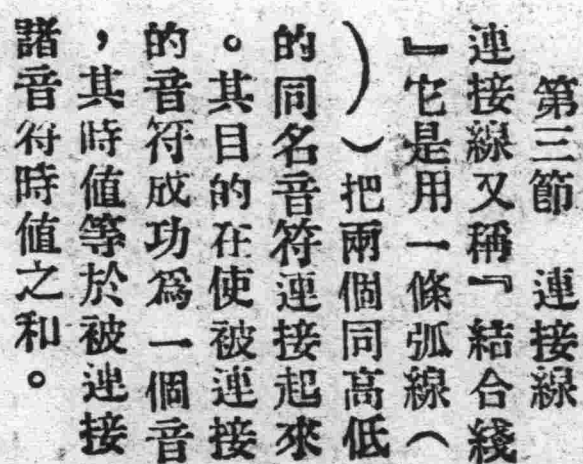 第三節　連接線
連接線又稱『結合綫
』它是用一條弧線（
⌒）把兩個同高低
的同名音符連接起來
。其目的在使被連接
的音符成功爲一個音
，其時值等於被連接
諸音符時值之和。